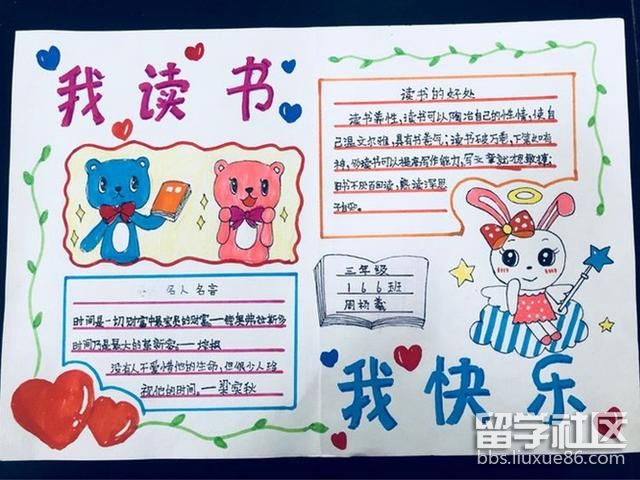 我读书
读书的好处
读书养性,读书可以陶冶自己的性情,使自
己温文尔雅,具有书卷气;读书破万卷,下笔如有
神,多读书可以提高写作能力,写文章就才思敏捷;
旧书不厌百回读,熟读深思
子自知。
名人名言
时间是一切财富中最宝贵的财富。——德奥弗拉斯多
时间乃是最大的革新家。——培根
没有人不爱惜他的生命,但很少人珍
视他的时间。——梁实秋
三年级
166班
周杨
我快乐
留学社区
bbs.liuxue86.com